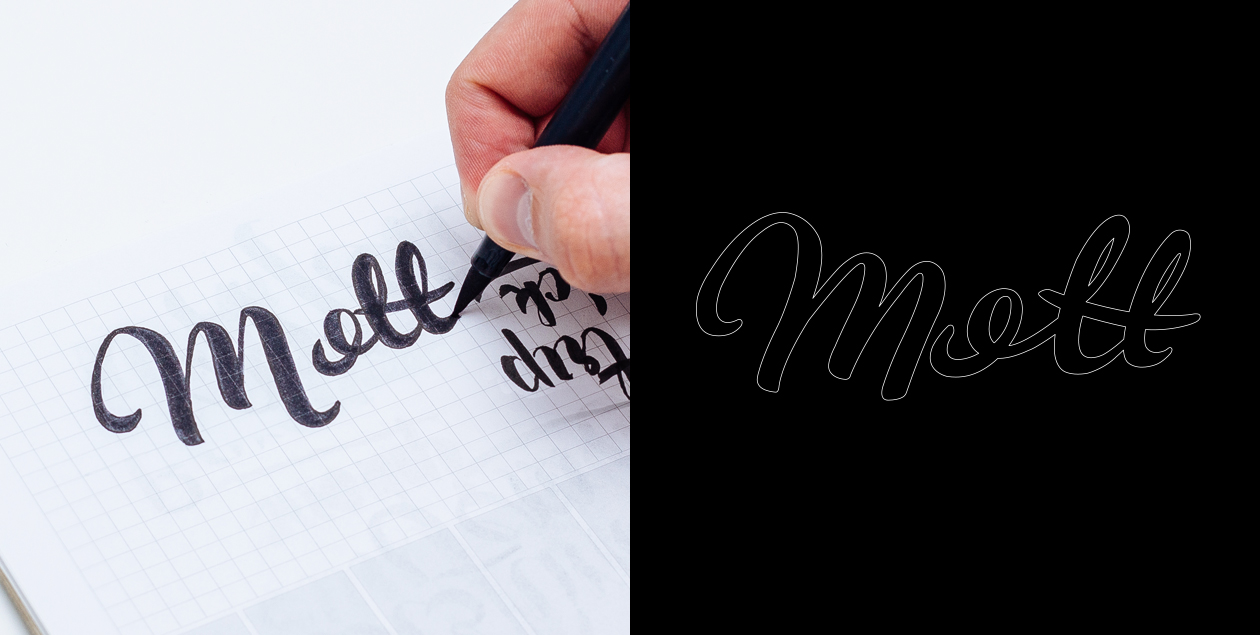 Mott
Mott